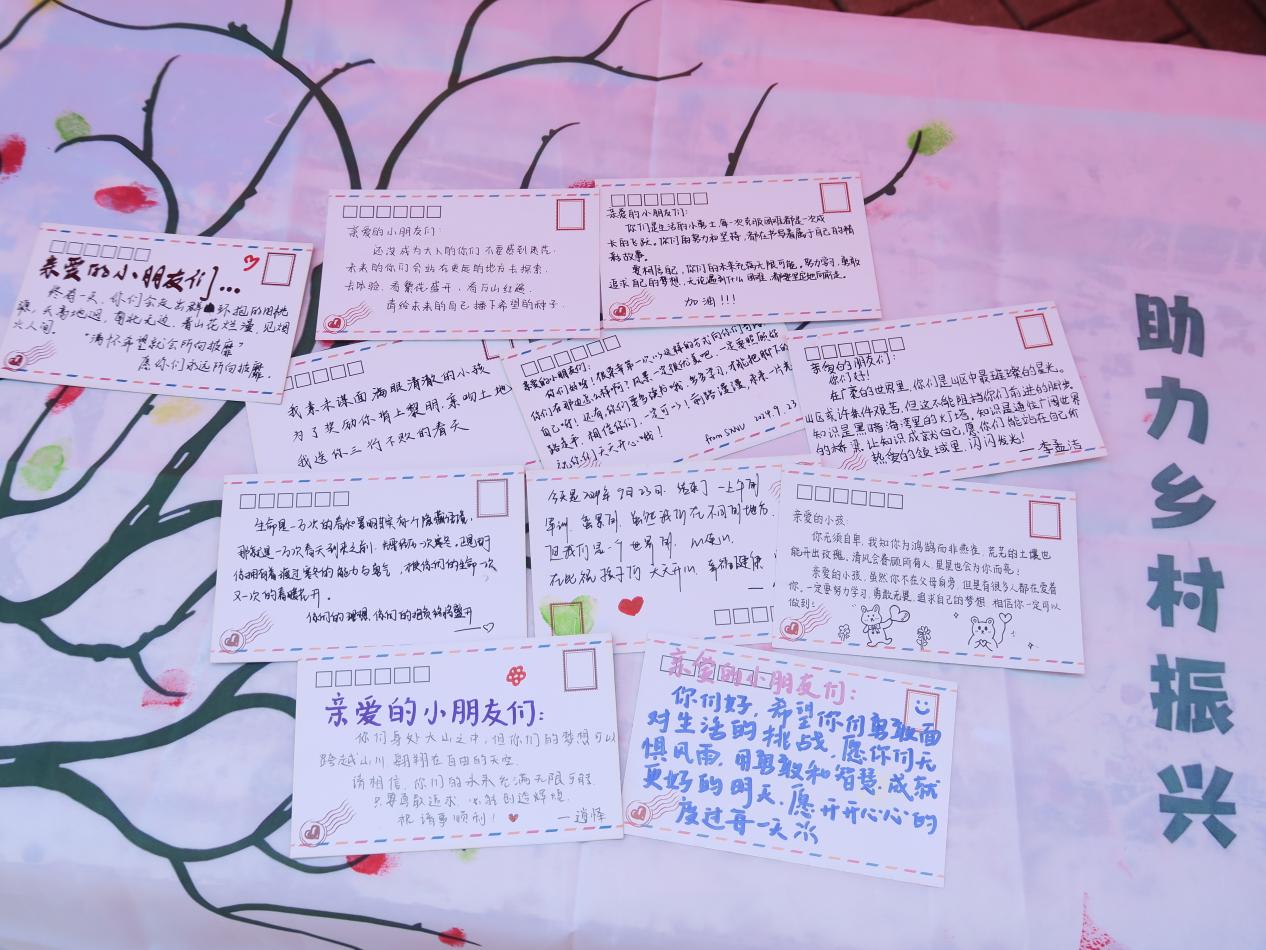 亲爱的小朋友们...
终有一天,你们会走出群山环抱的
天高地迥,自北无边,看山花烂漫,见烟
火人间。
"满怀希望就会所向披靡"
愿你们永远所向披靡.
亲爱的小朋友们:
还没成为大人的你们不要感到迷茫,
未来的你们会站在更远的地方去探索,
去体验,看繁花盛开,看万山红遍
请给未来的自己播下希望的种子.
亲爱的小朋友们:
你们是生活的小勇士,每一次克服困难都是一次成
长的飞跃。你们的努力和坚持,都在书写着属于自己的精
彩故事。
要相信自己,你们的未来充满无限可能。努力学习,勇敢
追求自己的梦想,无论遇到什么困难,都要坚定地向前走。
加油!!!
我素未谋面满眼清澈的小孩
为了奖励你肩上黎明,亲吻土地
我送你三行不败的春天
亲爱的小朋友们:
你们好呀!很荣幸第一次以这样的方式向你们
你们在那边怎么样啊?风景一定很优美吧,一定要照顾好
自己呀!还有,你们要多读书哦,多多学习,才能把脚下的
路走平,相信你们,一定可以!前路漫漫,未来一片光
祝你们天天开心哦!
from SNNU 2024.9.23
亲爱的朋友们:
你们好!
在广袤的世界里,你们是山区中最璀璨的星光。
山区或许条件艰苦,但这不能阻挡你们前进的脚步。
知识是黑暗海湾里的灯塔,知识是通往广阔世界
的桥梁,让知识成就自己,愿你们能站在自己所
热爱的领域里,闪闪发光!
—李孟洁
生命是一万次的春和景明
那就是一万次春天到来之前,
你拥有着渡过寒冬的能力与勇气,
又一次的春暖花开。
你们的理想,你们的
今天是2024年9月23日,结束了一上午的
军训,虽累的,虽然我们在不同的地方,
但我们是一个世界的,
在此祝孩子们天天开心,幸福健康
亲爱的小孩:
你无须自卑,我知你为鸿鹄而非燕雀,荒芜的土壤也
能开出玫瑰,清风会眷顾所有人,星星也会为你而亮!
亲爱的小孩,虽然你不在父母身旁,但是有很多人都在爱着
你,一定要努力学习,勇敢无畏,追求自己的梦想,相信你一定可以
做到!
亲爱的小朋友们:
你们身处大山之中,但你们的梦想可以
跨越山川,翱翔在自由的天空.
请相信,你们的未来充满无限可能,
只要勇敢追求,必能创造辉煌.
祝诸事顺利!
亲爱的小朋友们:
你们好,希望你们勇敢面
对生活的挑战,愿你们无
惧风雨,用勇敢和智慧,成就
更好的明天,愿开开心心的
度过每一天
助力乡村振兴